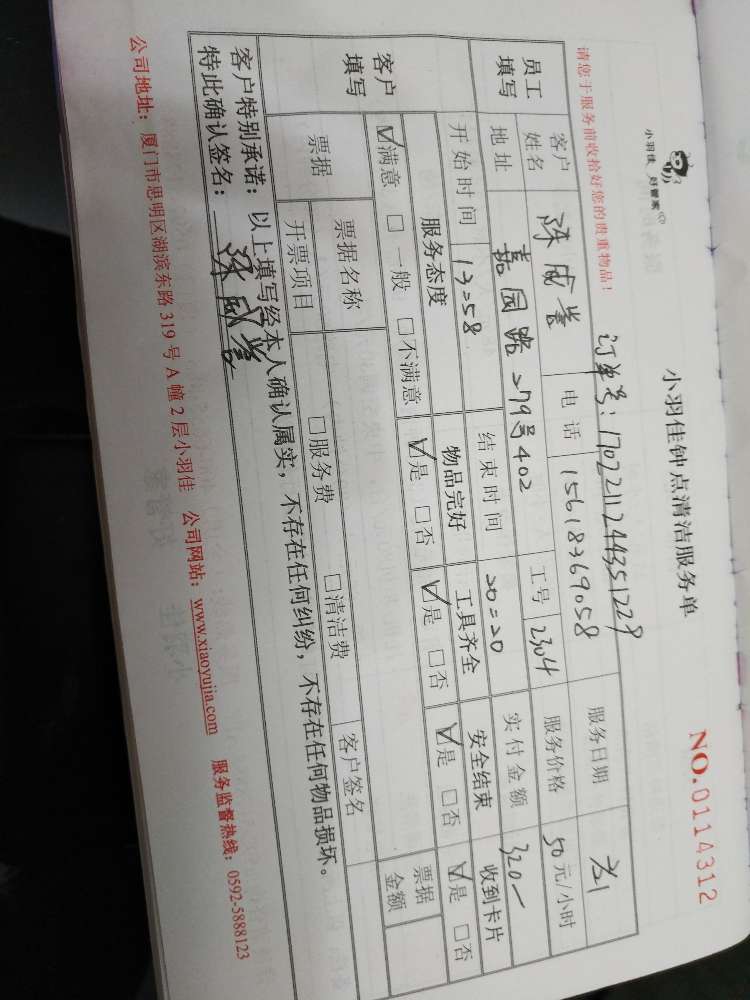 小羽佳 好管家
小羽佳钟点清洁服务单
NO.0114312
请您于服务前收拾好您的贵重物品!
订单号: 17022112443512229
员工填写
客户姓名 陈威誉 电话 15618369058 服务日期
地址 嘉园路279号402 工号 2304 服务价格 50元/小时
开始时间 13:58 结束时间 20:20 实付金额 320一
客户填写
服务态度 物品完好 工具齐全 安全结束 收到卡片
☑满意 □一般 □不满意 ☑是 □否 ☑是 □否 ☑是 □否 ☑是 □否
票据 票据名称 客户签名 票据金额
开票项目 □服务费 □清洁费
客户特别承诺: 以上填写经本人确认属实,不存在任何纠纷,不存在任何物品损坏。
特此确认签名: 陈威誉
公司地址: 厦门市思明区湖滨东路319号A幢2层小羽佳 公司网站: www.xiaoyujia.com 服务监督热线: 0592-5888123